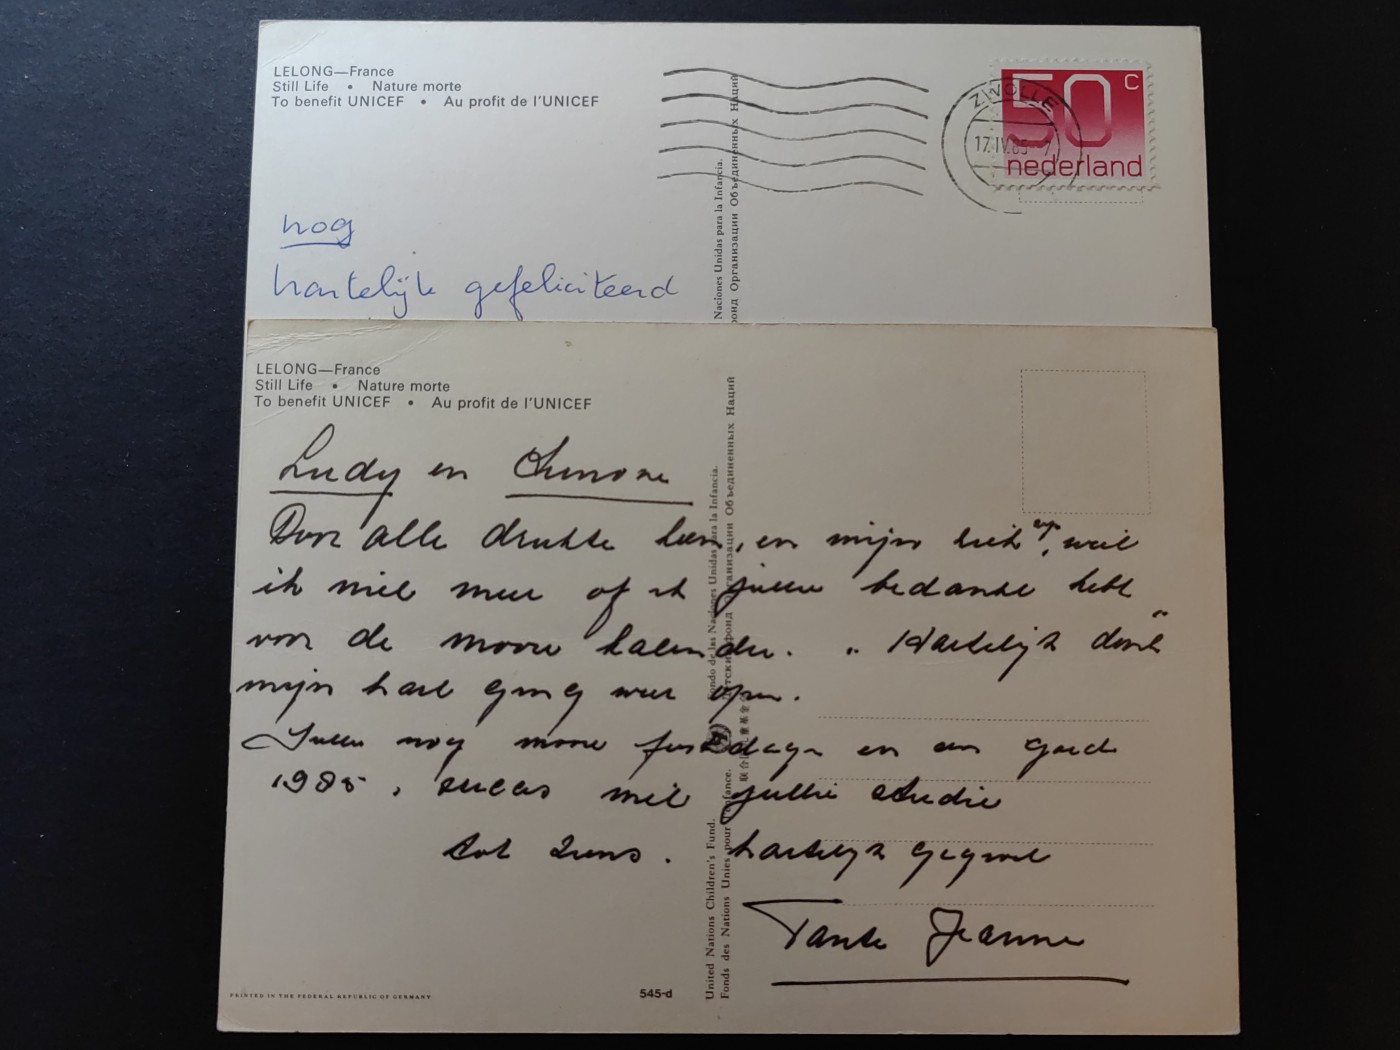 LELONG—France
Still Life • Nature morte
To benefit UNICEF • Au profit de l'UNICEF
ZWOLLE
17.IV.85-7
50 c
nederland
nog
hartelijk gefeliciteerd
Naciones Unidas para la Infancia.
фонд Организации Объединенных Наций
LELONG—France
Still Life • Nature morte
To benefit UNICEF • Au profit de l'UNICEF
Ludy en
Door alle drukte heen, en mijn hield op, weet
ik niet meer of ik jullie bedankt hebt
voor de mooie kalender. "Hartelijk dank"
mijn hart ging weer open.
Jullie nog mooie feestdagen en een goed
1985, succes met jullie studie
tot ziens. hartelijk gegroet
Tante Jeanne
United Nations Children's Fund. Fondo de las Naciones Unidas para la Infancia.
Fonds des Nations Unies pour l'enfance. Детский фонд Организации Объединенных Наций
PRINTED IN THE FEDERAL REPUBLIC OF GERMANY
545-d